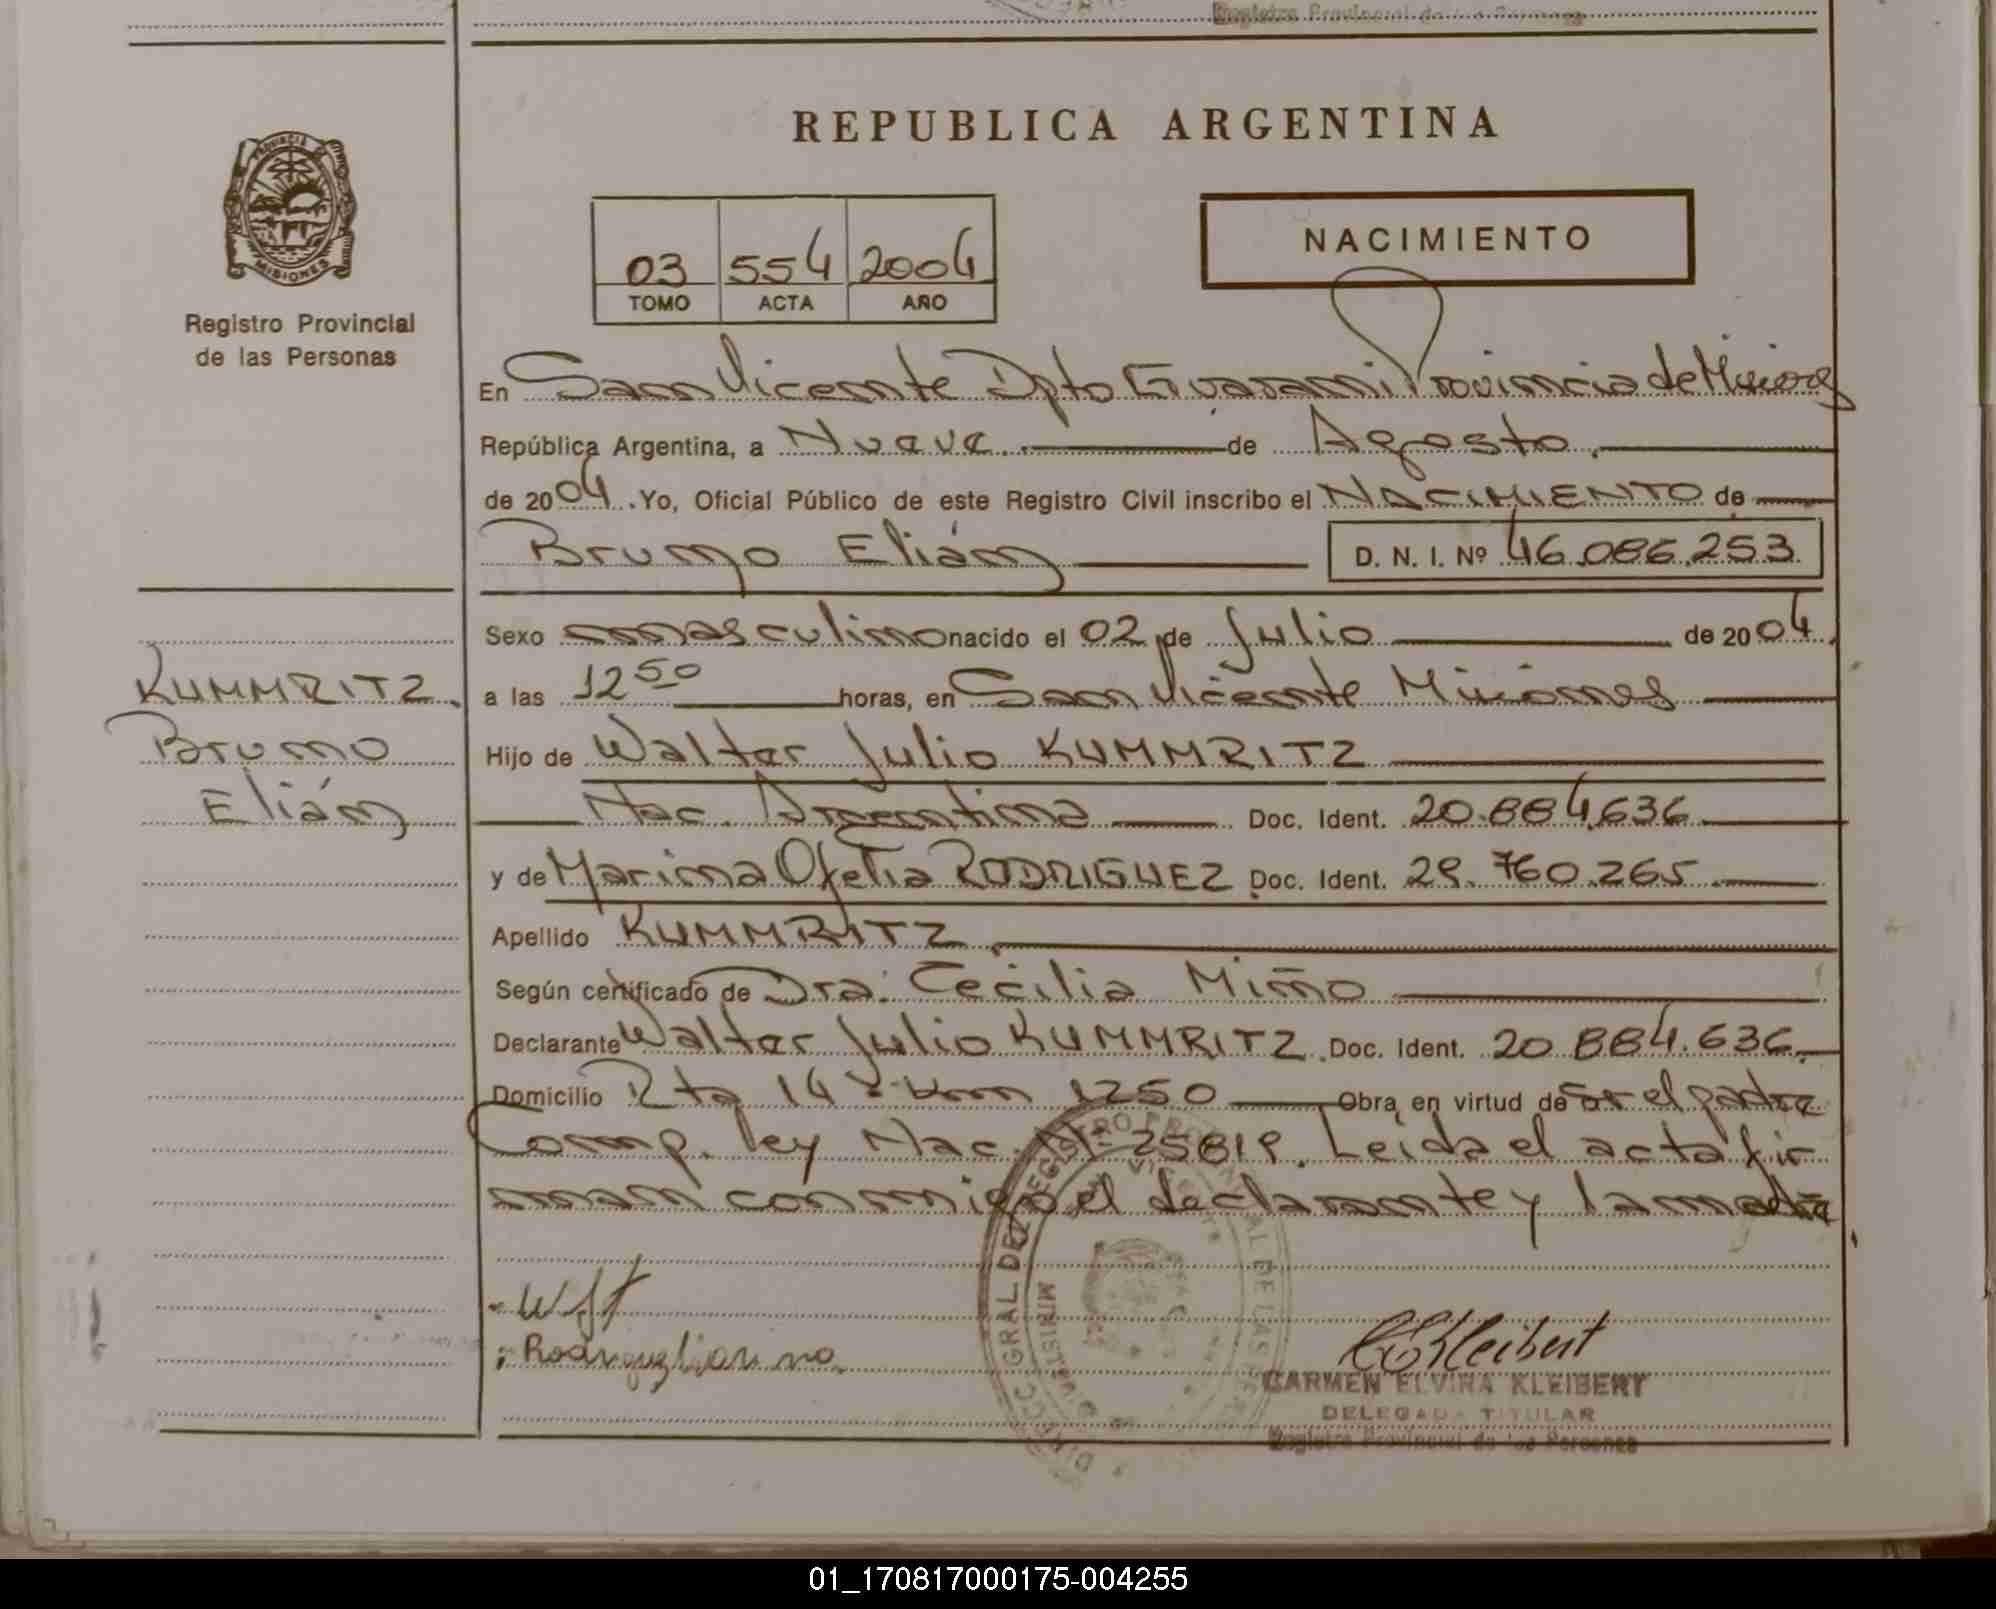 Registro Provincial de las Personas
REPUBLICA ARGENTINA
PROVINCIA
MISIONES
Registro Provincial
de las Personas
03 554 2004
TOMO ACTA AÑO
NACIMIENTO
En San Vicente Dpto Guarani Provincia de Misiones
República Argentina, a Nueve de Agosto
de 2004. Yo, Oficial Público de este Registro Civil inscribo el NACIMIENTO de
Bruno Elián D. N. I. Nº 46.086.253
Sexo masculino nacido el 02 de Julio de 2004.
KUMMRITZ
Bruno
Elián
a las 12 50 horas, en San Vicente Misiones
Hijo de Walter Julio KUMMRITZ
Nac. Argentina Doc. Ident. 20.884.636
y de Marina Ofelia RODRIGUEZ Doc. Ident. 29.760.265
Apellido KUMMRITZ
Según certificado de Dra. Cecilia Miño
Declarante Walter Julio KUMMRITZ Doc. Ident. 20.884.636
Domicilio Rta 14 Km 1250 Obra en virtud de ser el padre
Comp. ley Nac. Nº 25819. Leida el acta fir
man conmigo el declarante y la madre
CKleibert
CARMEN ELVIRA KLEIBERT
DELEGADA TITULAR
Registro Provincial de las Personas
01_170817000175-004255